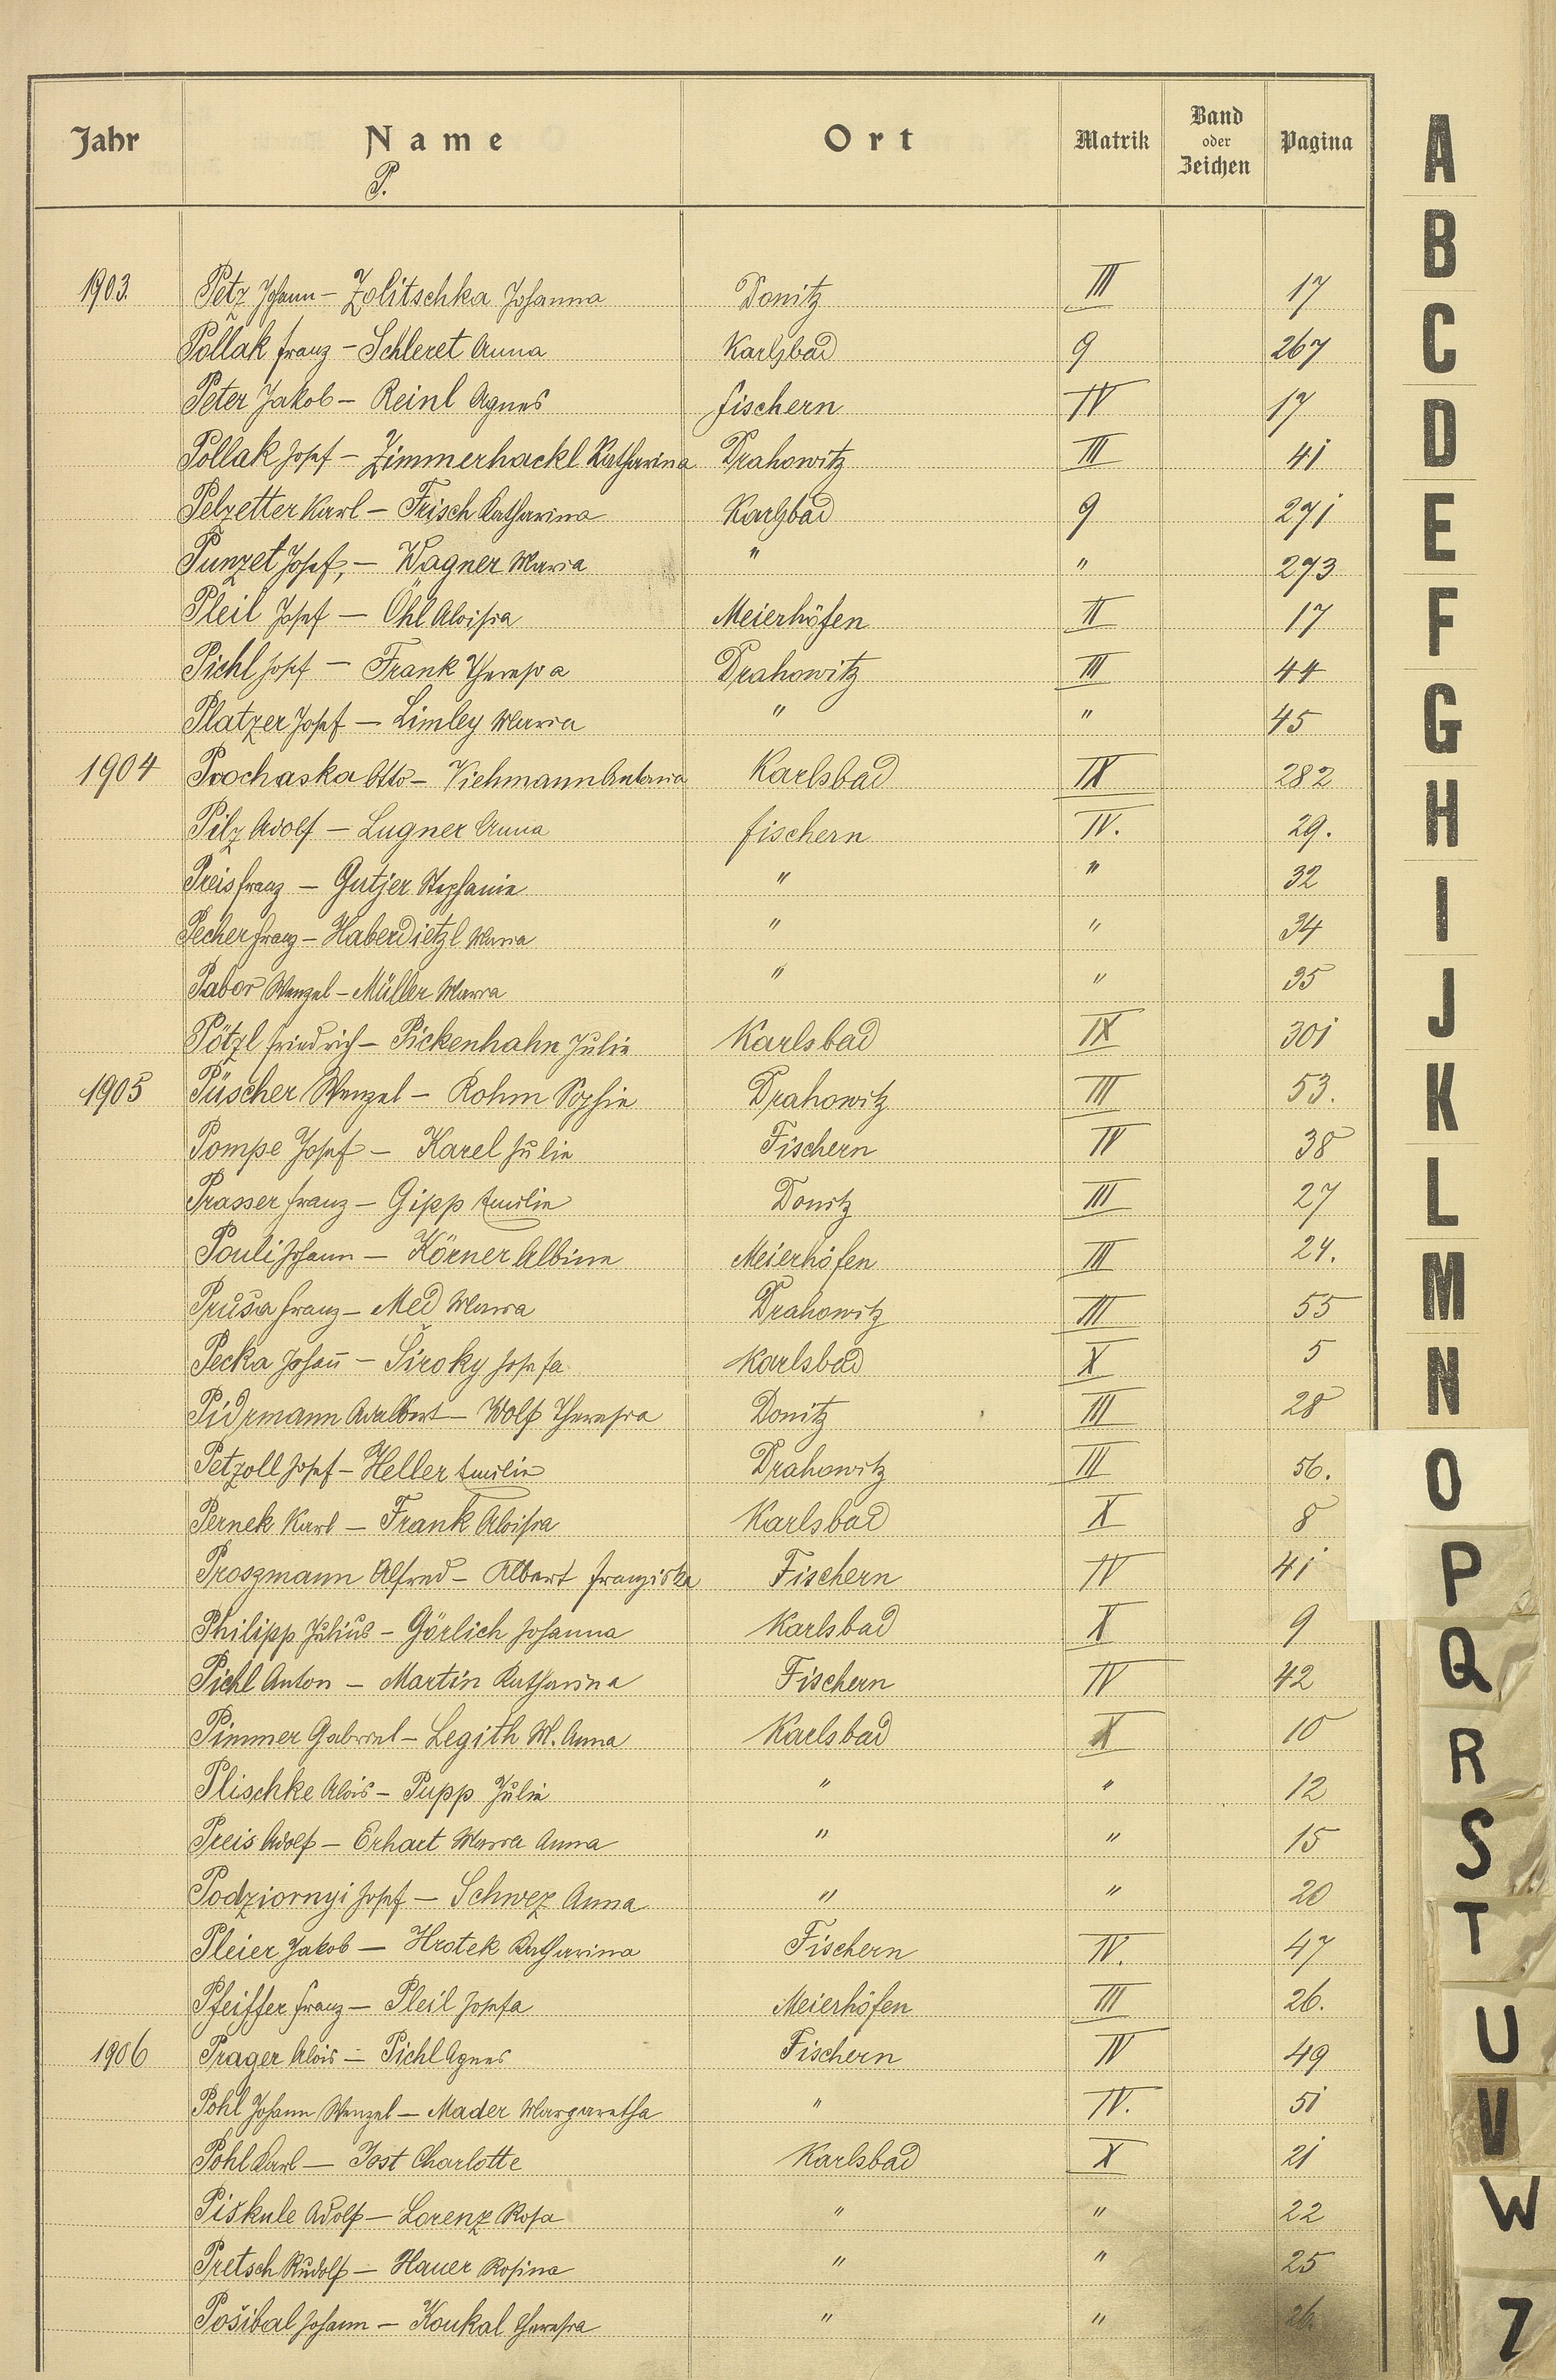 Jahr Name Ort Matrik Band oder Zeichen Pagina
P.
1903. Petz Johann – Zolitschka Johanna Donitz III 17
Pollak Franz – Schleret Anna Karlsbad 9 267
Peter Jakob – Reinl Agnes Fischern IV 17
Pollak Josef – Zimmerhackl Katharina Drahowitz III 41
Pelzetter Karl – Frisch Katharina Karlsbad 9 271
Punzet Josef, – Wagner Maria " " 273
Pleil Josef – Öhl Aloisia Meierhöfen II 17
Pichl Josef – Frank Theresia Drahowitz III 44
Platzer Josef – Limley Maria " " 45
1904 Prochaska Otto – Viehmann Antonia Karlsbad IX 282
Pilz Adolf – Lugner Anna Fischern IV. 29.
Preis Franz – Gutjer Stephanie " " 32
Pecher Franz – Haberdietzl Maria " " 34
Pabor Wenzel – Müller Maria " " 35
Pötzl Friedrich – Pickenhahn Julie Karlsbad IX 301
1905 Püscher Wenzel – Rohm Sophie Drahowitz III 53.
Pompe Josef – Karel Julie Fischern IV 38
Prasser Franz – Gipp Emilie Donitz III 27
Pouli Johann – Körner Albine Meierhöfen III 24.
Průša Franz – Med Maria Drahowitz III 55
Pecka Johañ – Široky Josefa Karlsbad X 5
Pidrmann Adalbert – Wolf Theresia Donitz III 28
Petzoll Josef – Heller Emilie Drahowitz III 56.
Pernek Karl – Frank Aloisia Karlsbad X 8
Proszmann Alfred – Albert Franziska Fischern IV 41
Philipp Julius – Görlich Johanna Karlsbad X 9
Pichl Anton – Martin Katharina Fischern IV 42
Pimmer Gabriel – Legith M. Anna Karlsbad X 10
Plischke Alois – Pupp Julie " " 12
Preis Adolf – Erhart Maria Anna " " 15
Podziornyi Josef – Schwez Anna " " 20
Pleier Jakob – Hrotek Katharina Fischern IV. 47
Pfeiffer Franz – Pleil Josefa Meierhöfen III 26.
1906 Prager Alois – Pichl Agnes Fischern IV 49
Pohl Johann Wenzel – Mader Margaretha " IV. 51
Pohl Karl – Jost Charlotte Karlsbad X 21
Piškule Adolf – Lorenz Rosa " " 22
Pretsch Rudolf – Hauer Rosina " " 25
Pošibal Johann – Koukal Theresia " " 26
A
B
C
D
E
F
G
H
I
J
K
L
M
N
O
P
Q
R
S
T
U
V
W
Z